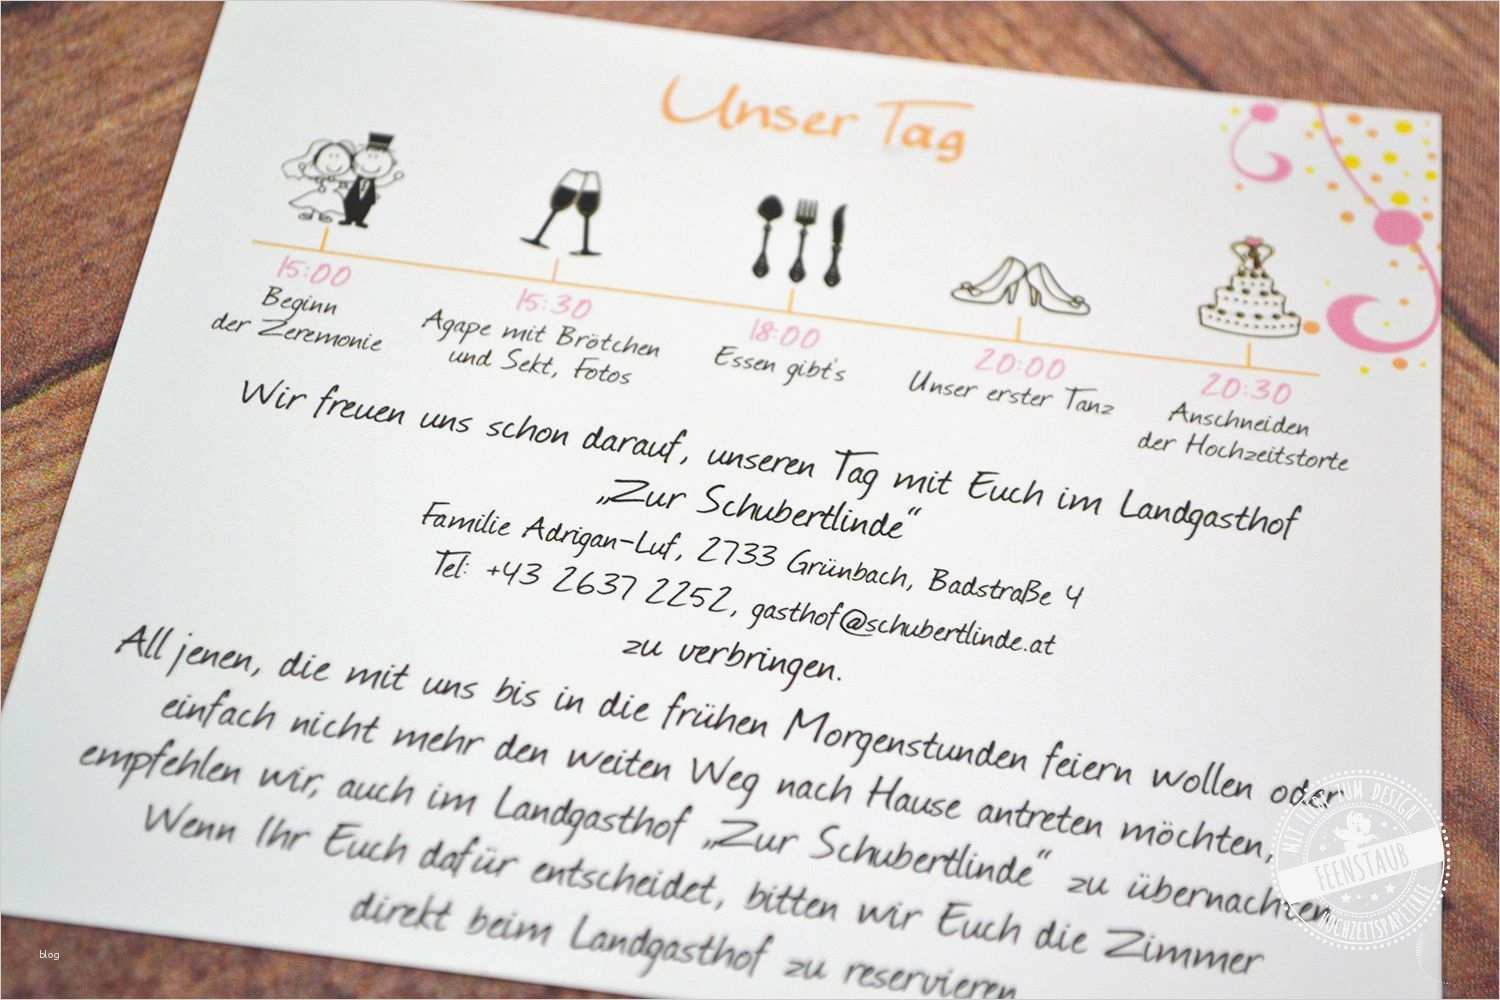 Unser Tag
15:00
Beginn
der Zeremonie
15:30
Agape mit Brötchen
und Sekt, Fotos
18:00
Essen gibt's
20:00
Unser erster Tanz
20:30
Anschneiden
der Hochzeitstorte
Wir freuen uns schon darauf, unseren Tag mit Euch im Landgasthof
„Zur Schubertlinde“
Familie Adrigan-Luf, 2733 Grünbach, Badstraße 4
Tel: +43 2637 2252, gasthof@schubertlinde.at
zu verbringen.
All jenen, die mit uns bis in die frühen Morgenstunden feiern wollen oder
einfach nicht mehr den weiten Weg nach Hause antreten möchten,
empfehlen wir, auch im Landgasthof „Zur Schubertlinde“ zu übernachten.
Wenn Ihr Euch dafür entscheidet, bitten wir Euch die Zimmer
direkt beim Landgasthof zu reservieren
DESIGN
FEENSTAUB
HOCHZEITSPAPETERIE
blog